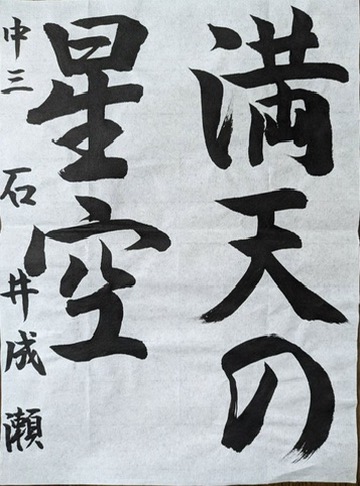 満天の
星空
中三 石井成瀬